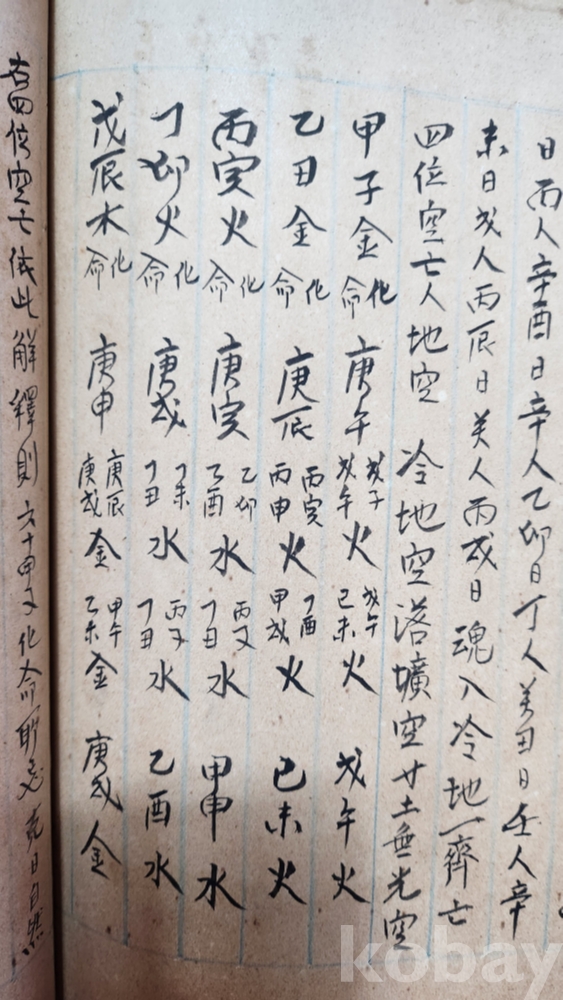 日丙人辛酉日辛人乙卯日丁人癸丑日壬人辛
未日戊人丙辰日癸人丙戌日魂入冷地一齊亡
四位空亡人地空 冷地空落壙空廿土無光空
甲子金化命 庚午 戊子戊午火 戊午己未火 戊午火
乙丑金化命 庚辰 丙寅丙申火 丁酉甲戌火 己未火
丙寅火化命 庚寅 乙卯乙酉水 丙子丁丑水 甲申水
丁卯火化命 庚戌 丁未丁丑水 丙子丁丑水 乙酉水
戊辰木化命 庚申 庚辰庚戌金 甲午乙未金 庚戌金
右四位空亡依此解釋則六十甲子化命 日自然
kobay